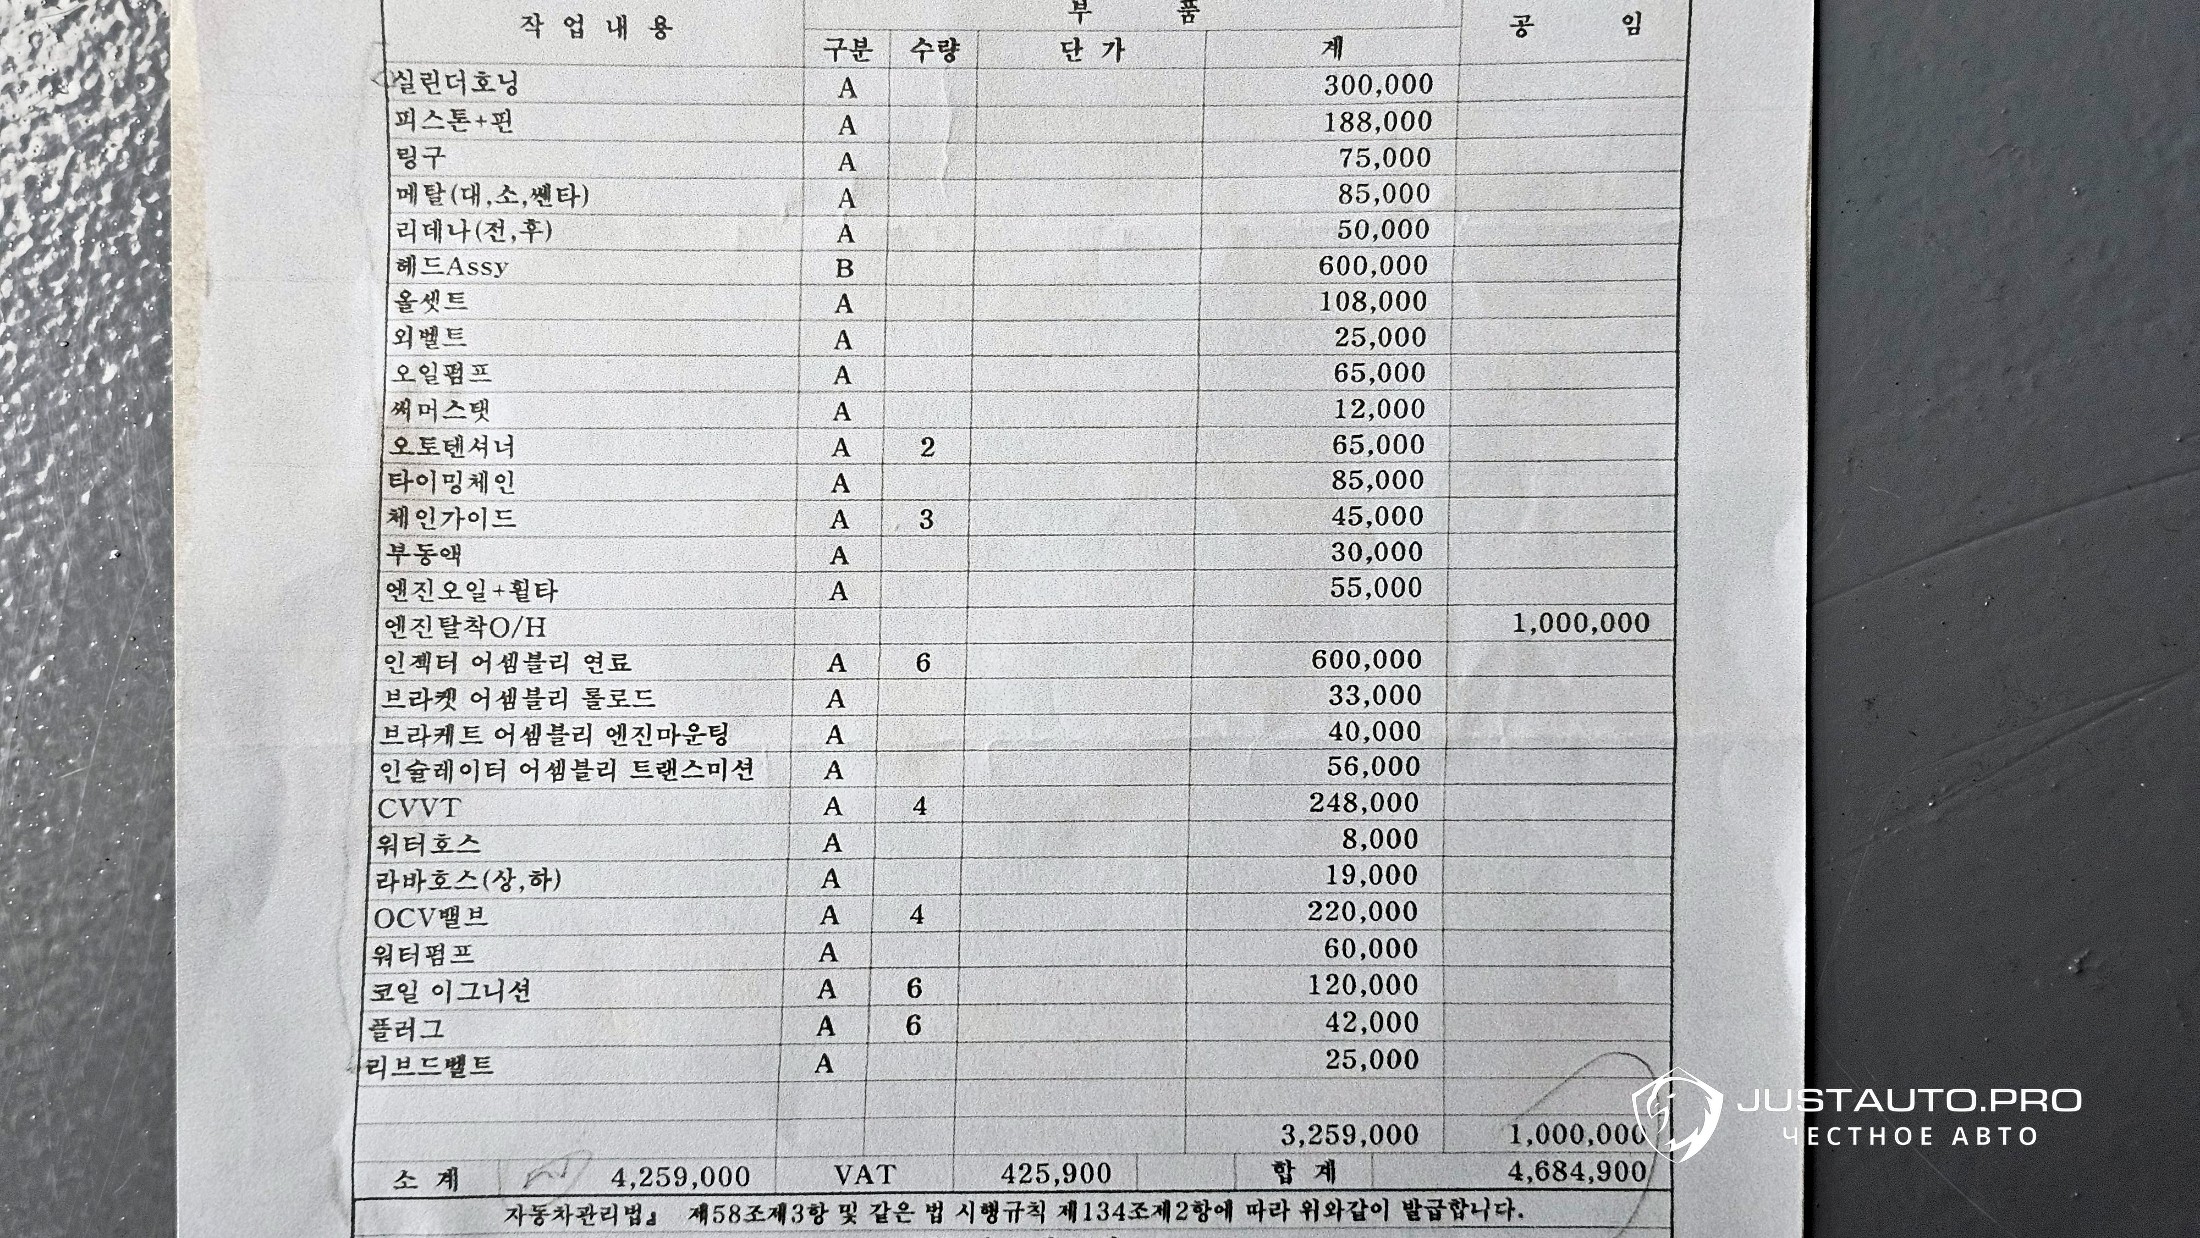 작 업 내 용 부 품 공 임
구분 수량 단 가 계
실린더호닝 A 300,000
피스톤+핀 A 188,000
링구 A 75,000
메탈(대,소,쎈타) A 85,000
리데나(전,후) A 50,000
헤드Assy B 600,000
올셋트 A 108,000
외벨트 A 25,000
오일펌프 A 65,000
써머스탯 A 12,000
오토텐셔너 A 2 65,000
타이밍체인 A 85,000
체인가이드 A 3 45,000
부동액 A 30,000
엔진오일+휠타 A 55,000
엔진탈착O/H 1,000,000
인젝터 어셈블리 연료 A 6 600,000
브라켓 어셈블리 롤로드 A 33,000
브라케트 어셈블리 엔진마운팅 A 40,000
인슐레이터 어셈블리 트랜스미션 A 56,000
CVVT A 4 248,000
워터호스 A 8,000
라바호스(상,하) A 19,000
OCV밸브 A 4 220,000
워터펌프 A 60,000
코일 이그니션 A 6 120,000
플러그 A 6 42,000
리브드벨트 A 25,000
3,259,000 1,000,000
소 계 4,259,000 VAT 425,900 합 계 4,684,900
자동차관리법』 제58조제3항 및 같은 법 시행규칙 제134조제2항에 따라 위와같이 발급합니다.
JUSTAUTO.PRO
ЧЕСТНОЕ АВТО